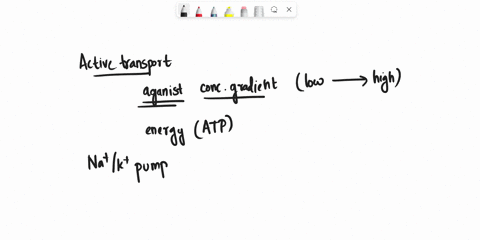 Active transport
aganist conc. gradient (low ⟶ high)
energy (ATP)
Na⁺/K⁺ pump